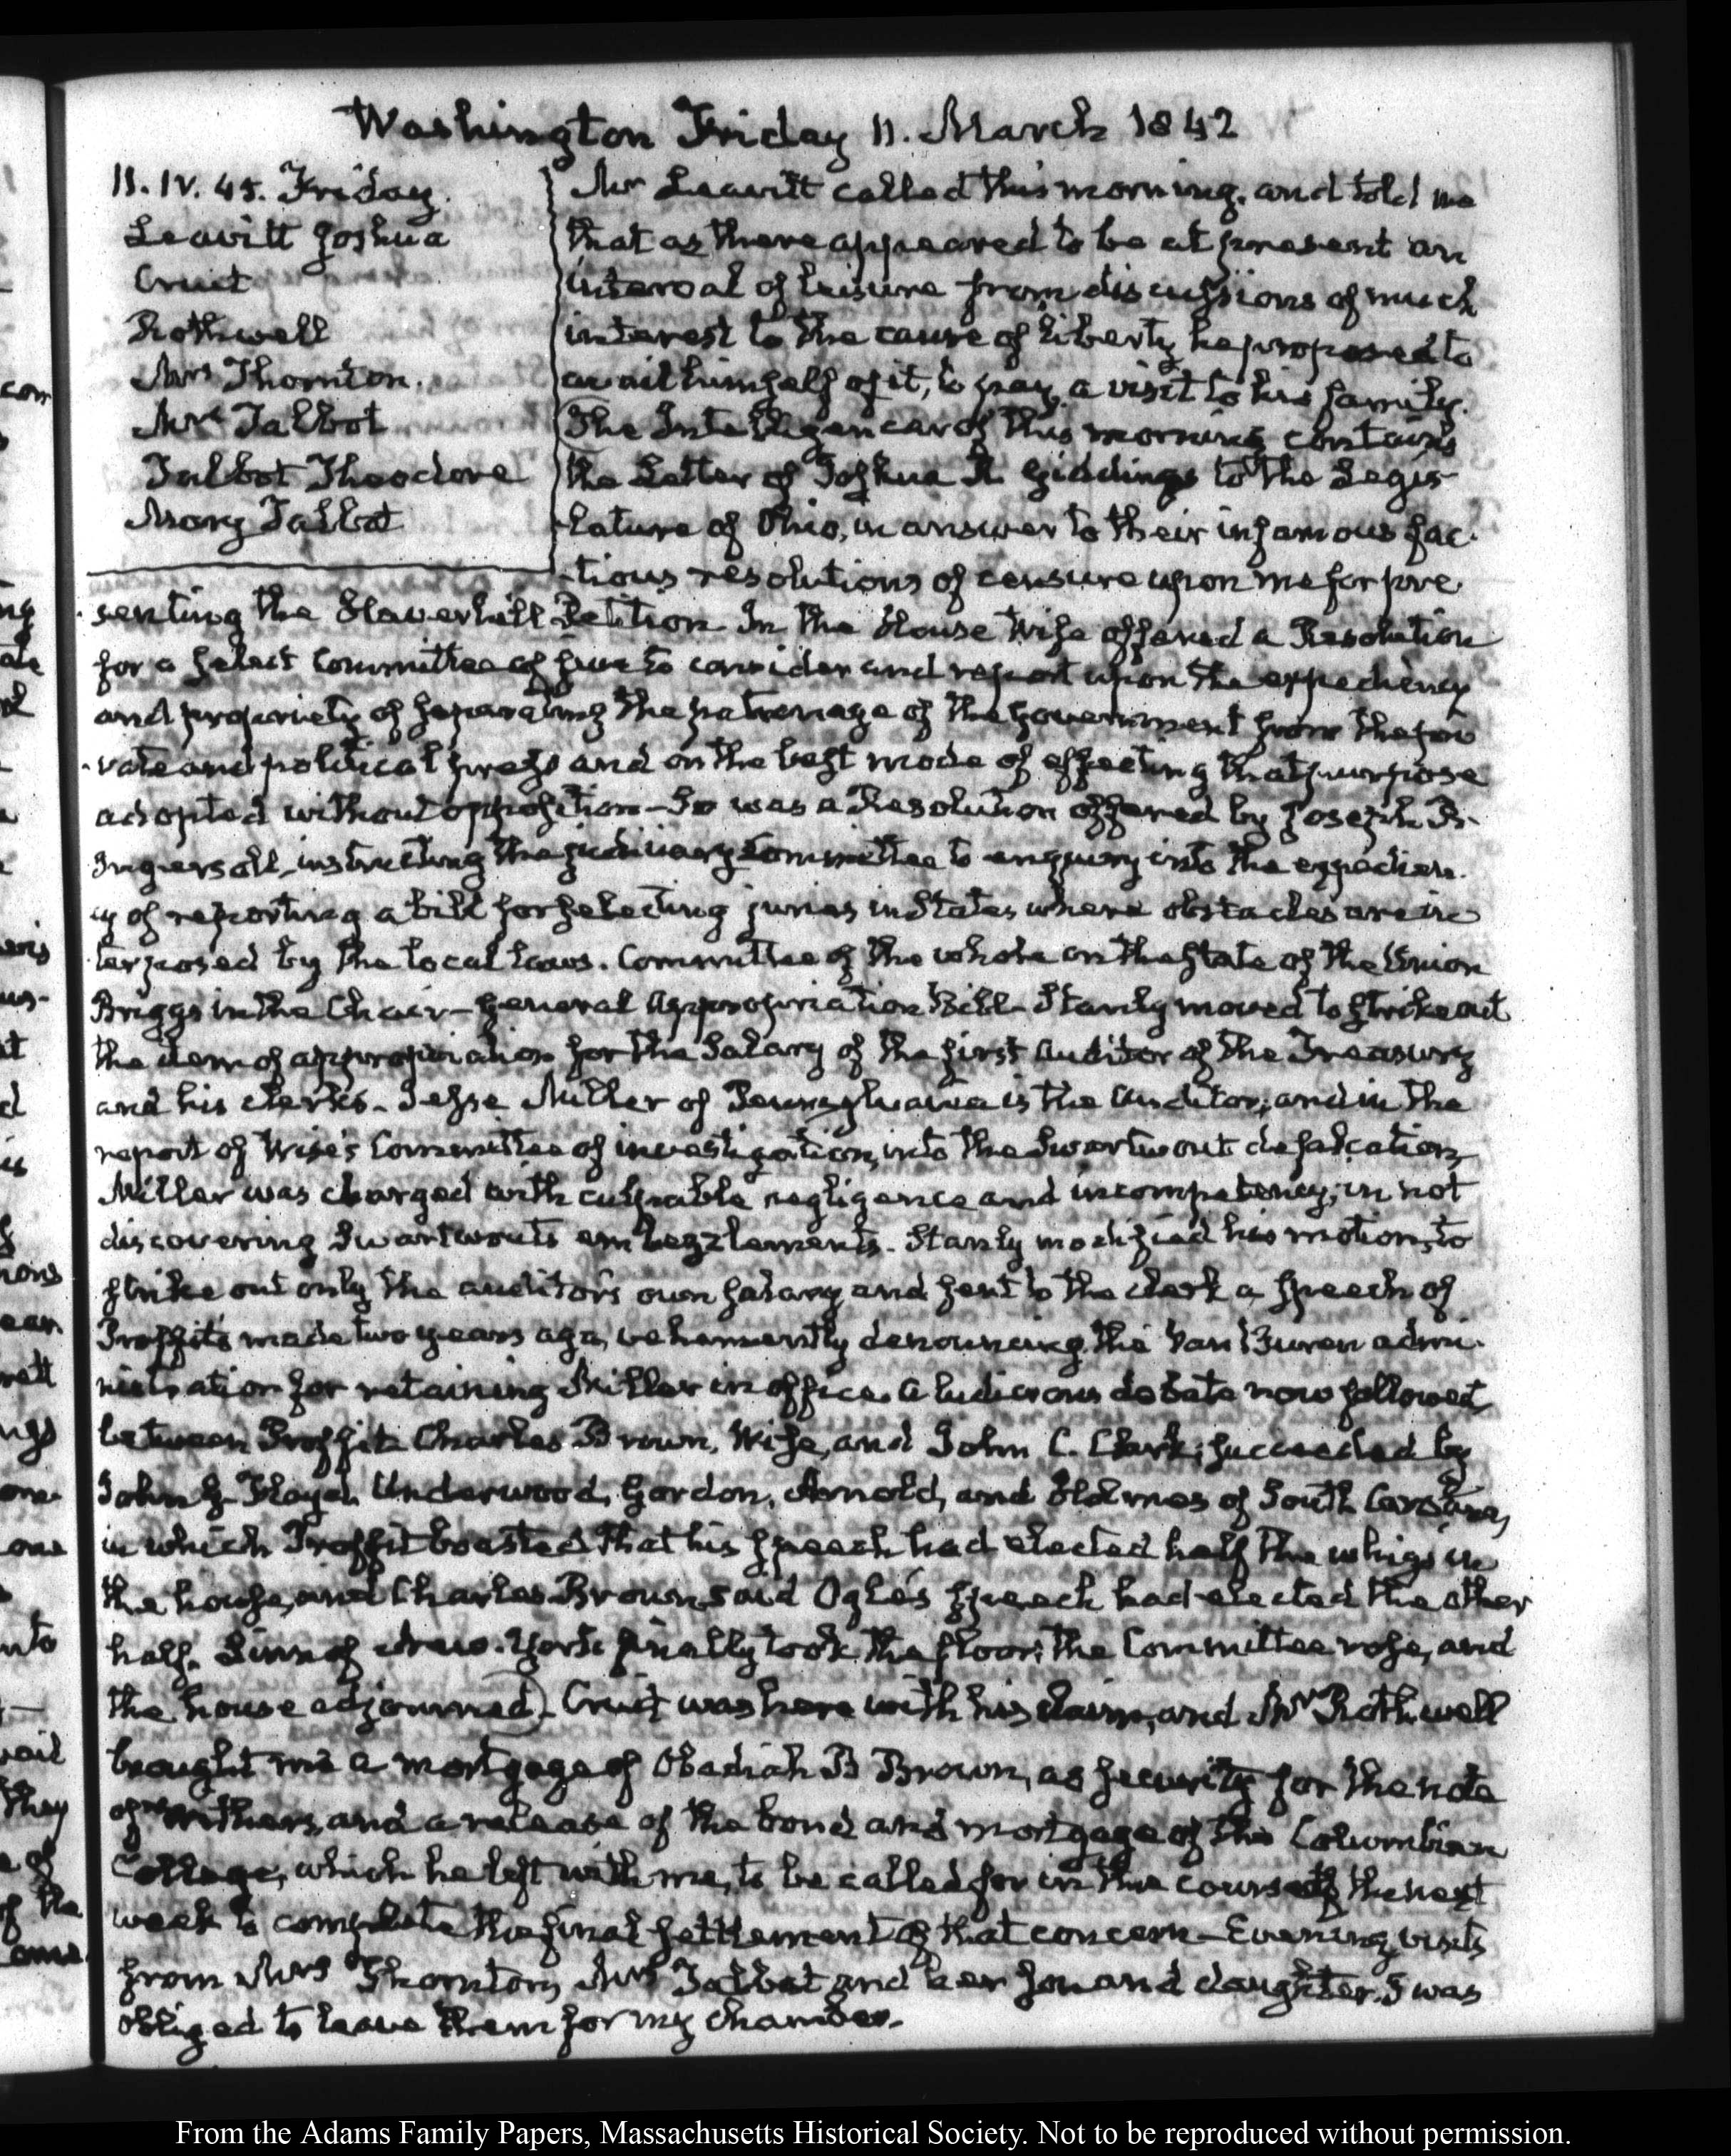 Washington Friday 11. March 1842
11. IV. 45. Friday.
Leavitt Joshua
Cruit
Rothwell
Mrs Thornton.
Mrs Talbot
Talbot Theodore
Mary Talbot
Mr Leavitt called this morning, and told me
that as there appeared to be at present an
interval of leisure from discussions of much
interest to the cause of liberty he proposed to
avail himself of it, to pay a visit to his family.
The Intelligencer of this morning contains
the Letter of Joshua R. Giddings to the Legis-
lature of Ohio, in answer to their infamous fac-
tious resolutions of censure upon me for pre
senting the Haverhill Petition In the House Wise offered a Resolution
for a select Committee of five to consider and report upon the expediency
and propriety of separating the patronage of the Government from the pri
vate and political press and on the best mode of effecting that purpose
adopted without opposition – So was a Resolution offered by Joseph R.
Ingersoll, instructing the judiciary Committee to enquiry into the expedien-
cy of reporting a bill for selecting juries in States where obstacles are in
terposed by the local laws. Committee of the whole on the State of the Union
Briggs in the Chair – General Appropriation Bill – Stanly moved to strike out
the item of appropriation for the Salary of the first Auditor of the Treasury
and his clerks – Jesse Miller of Pennsylvania is the Auditor; and in the
report of Wise's Committee of investigation, into the Swartwout defalcation,
Miller was charged with culpable negligence and incompetency, in not
discovering Swartwouts embezzlements. Stanly modified his motion, to
strike out only the auditor's own salary and sent to the clerk a speech of
Proffit's made two years ago, vehemently denouncing the Van Buren admi-
nistration for retaining Miller in office. A ludicrous debate now followed,
between Proffit Charles Brown, Wise, and John C. Clark; succeeded by
John G. Floyd, Underwood, Gordon, Arnold, and Holmes of South Carolina,
in which Proffit boasted that his speech had elected half the whigs in
the house, and Charles Brown said Ogle's speech had elected the other
half. Linn of New-York finally took the floor: the Committee rose, and
the house adjourned) – Cruit was here with his claim, and Mr Rothwell
brought me a mortgage of Obadiah B Brown, as security for the note
of Withers, and a release of the bond and mortgage of the Columbian
College, which he left with me, to be called for in the course of the next
week to complete the final settlement of that concern – Evening visits
from Mrs Thornton, Mrs Talbot and her son and daughter. I was
obliged to leave them for my chamber.
From the Adams Family Papers, Massachusetts Historical Society. Not to be reproduced without permission.